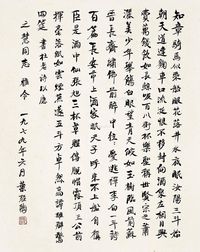 知章騎馬似乘船眼花落井水底眠汝陽三斗始
朝天道逢麴車口流涎恨不移封向酒泉左相日興
費萬錢飲如長鯨吸百川銜杯樂聖稱世賢宗之瀟
灑美少年舉觴白眼望青天皎如玉樹臨風前蘇
晉長齋繡佛前醉中往往愛逃禪李白一斗詩
百篇長安市上酒家眠天子呼來不上船自稱
臣是酒中仙張旭三杯草聖傳脫帽露頂王公前
揮毫落紙如雲煙焦遂五斗方卓然高談雄辯驚
四筵 書杜老詩以應
同志雅令 一九七九年六月 葉聖陶